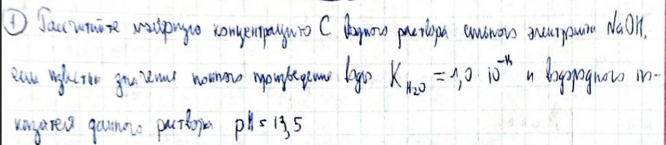 ① Рассчитайте молярную концентрацию C водного раствора сильного электролита NaOH,
если известны значения ионного произведения воды K_H₂O = 1,0 · 10⁻¹⁴ и водородного по-
казателя данного раствора pH = 13,5